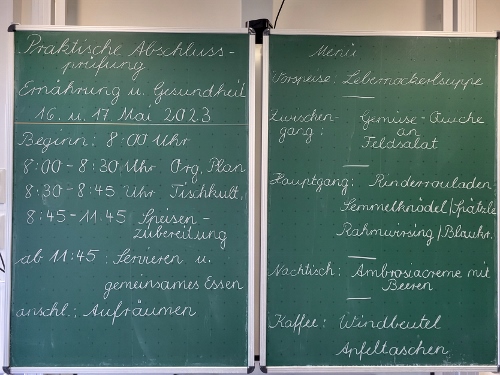 Praktische Abschluss-
prüfung
Ernährung u. Gesundheit
16. u. 17 Mai 2023
Beginn: 8:00 Uhr
8:00-8:30 Uhr Org. Plan
8:30-8:45 Uhr Tischkult.
8:45-11.45 Speisen-
zubereitung
ab 11:45: Servieren u.
gemeinsames Essen
anschl.: Aufräumen
Menü
Vorspeise: Lebernockerlsuppe
Zwischen-
gang:
Gemüse-Quiche
an
Feldsalat
Hauptgang: Rinderrouladen
Semmelknödel/Spätzle
Rahmwirsing/Blaukr.
Nachtisch: Ambrosiacreme mit
Beeren
Kaffee: Windbeutel
Apfeltaschen